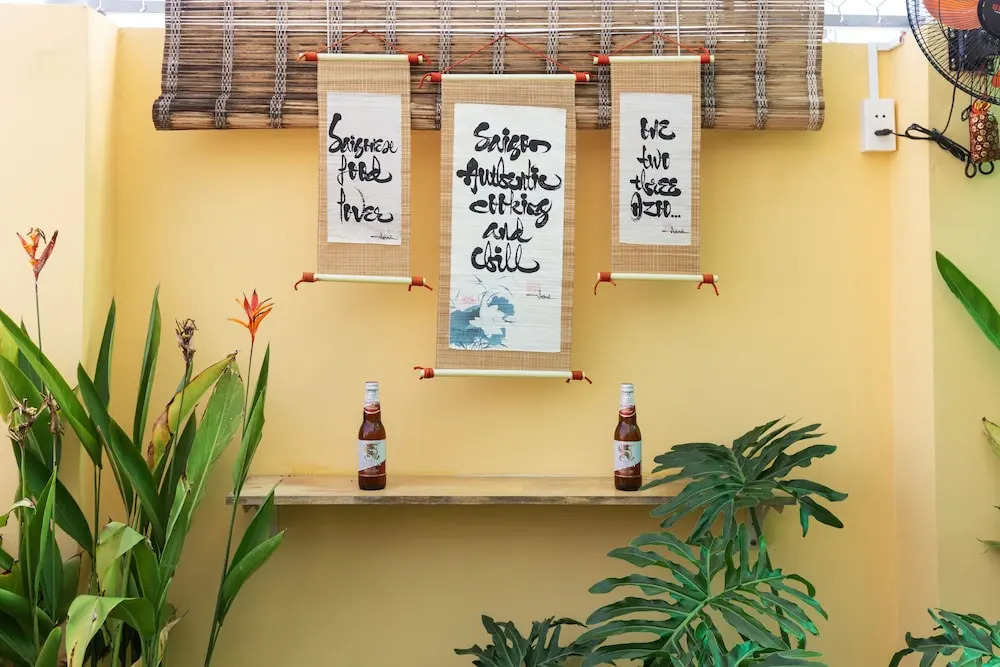 Saigonese
food
lover
Saigon
Authentic
cooking
and
Chill
one
two
three
DZO...